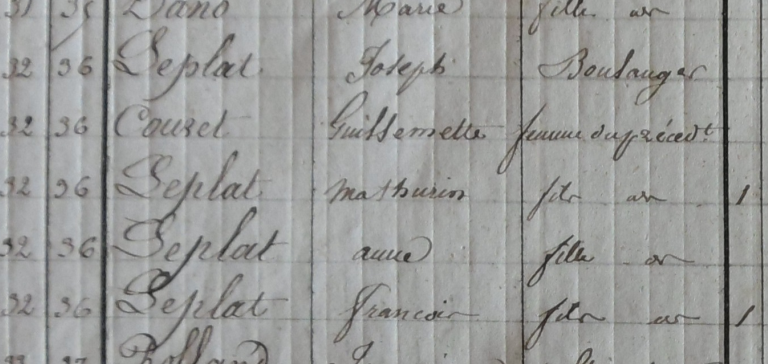 31 35 Dano Marie fille id
32 36 Leplat Joseph Boulanger
32 36 Couret Guillemette femme du précédt
32 36 Leplat Mathurin fils id 1
32 36 Leplat anne fille id
32 36 Leplat francois fils id 1
Rolland